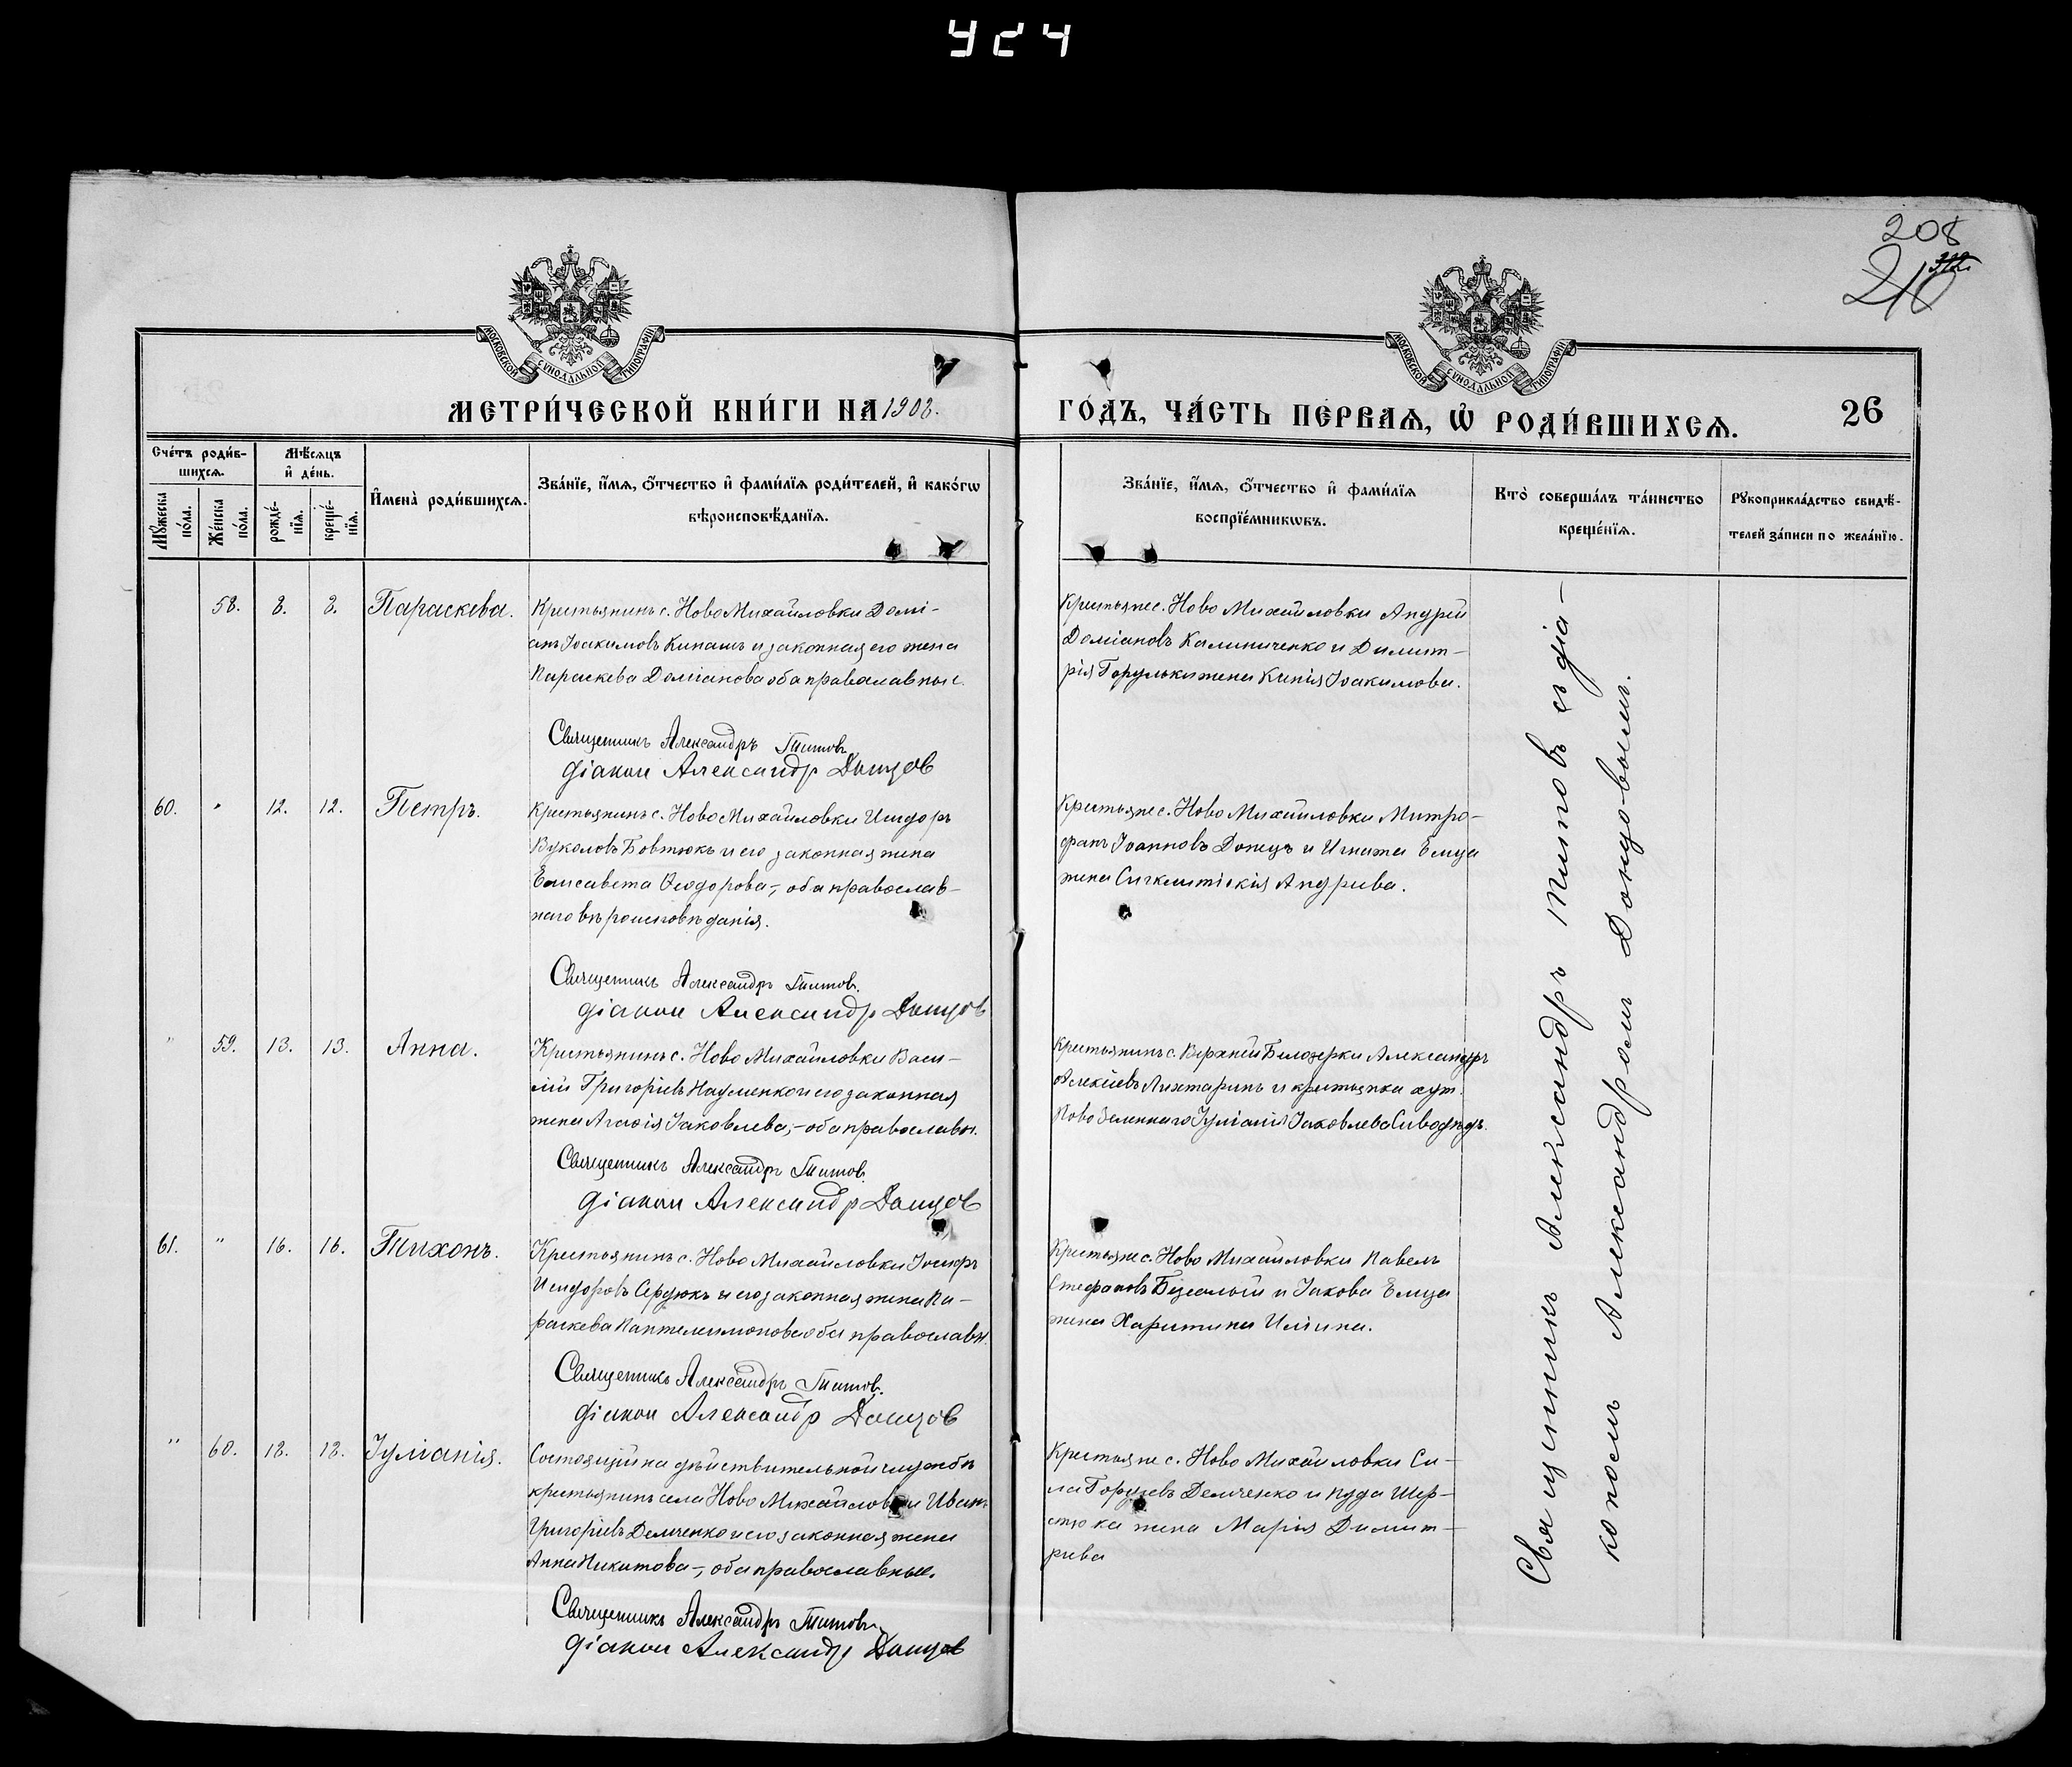 424
208
210
МОСКОВСКОЙ СѴНОДАЛЬНОЙ ТИПОГРАФІИ
МОСКОВСКОЙ СѴНОДАЛЬНОЙ ТИПОГРАФІИ
МЕТРИ́ЧЕСКОЙ КНИ́ГИ НА 1908.
ГО́ДЪ, ЧА́СТЬ ПЕ́РВАѦ, Ѡ҆ РОДИ́ВШИХСѦ.
26
Сче́тъ роди́в-
шихсѧ.
Мꙋ́жеска
по́ла.
Же́нска
по́ла.
Мѣ́сѧцъ
и҆ де́нь.
рожде́-
нїѧ.
креще́-
нїѧ.
И҆мена̀ роди́вшихсѧ.
Зва́нїе, и҆́мѧ, ѻ҆́тчество и҆ фами́лїѧ роди́телей, и҆ како́гѡ
вѣроисповѣ́данїѧ.
Зва́нїе, и҆́мѧ, ѻ҆́тчество и҆ фами́лїѧ
воспрїе́мникѡвъ.
Кто̀ соверша́лъ та́инство
креще́нїѧ.
Рꙋкоприкла́дство свидѣ́-
телей за́писи по жела́нїю.
58. 8. 8. Параскева.
Крестьянинъ с. Ново Михайловки Домі-
анъ Іоакимовъ Кипашъ и законная его жена
Параскева Доміанова оба православные.
Священникъ Александръ Титовъ
діакон Александр Донцов
Крестьяне с. Ново Михайловки Андрей
Доміановъ Калиниченко и Димит-
рія Горульки жена Іоакимова.
60. " 12. 12. Петръ.
Крестьянинъ с. Ново Михайловки Исидоръ
Вуколовъ Бовтюкъ и его законная жена
Елисавета Ѳеодорова, оба православ-
наго вѣроисповѣданія.
Священникъ Александръ Титов.
діакон Александр Донцов
Крестьяне с. Ново Михайловки Митро-
фанъ Іоанновъ Донецъ и Игната Емца
жена Синклитикія Андреева.
" 59. 13. 13. Анна.
Крестьянинъ с. Ново Михайловки Васи-
лій Григоріевъ Науменко и его законная
жена Агаѳія Іаковлева, - оба православн.
Священникъ Александръ Титов.
діакон Александр Донцов
Крестьянинъ с. Верхней Белозерки Александръ
Алексіевъ Лихтаринъ и крестьянка хут.
Ново Зеленнаго Іуліанія Іаковлева Сиводѣдъ.
61. " 16. 16. Тихонъ.
Крестьянинъ с. Ново Михайловки Іосифъ
Исидоровъ Сердюкъ и его законная жена Па-
раскева Пантелеимонова оба православн.
Священникъ Александръ Титов.
діакон Александр Донцов
Крестьяне с. Ново Михайловки Павелъ
Стефановъ и Іакова Емца
жена Харитина Ильина.
" 60. 18. 18. Іуліанія.
Состоящій на дѣйствительной службѣ
крестьянинъ села Ново Михайловки Иванъ
Григоріевъ Демченко и его законная жена
Анна Никитова, оба православные.
Священникъ Александръ Титовъ
діакон Александр Донцов
Крестьяне с. Ново Михайловки Си-
ла Демченко и Іуда Шер-
стюка жена Марія Димит-
ріева
Священникъ Александръ Титовъ съ діа-
кономъ Александромъ Донцовымъ.